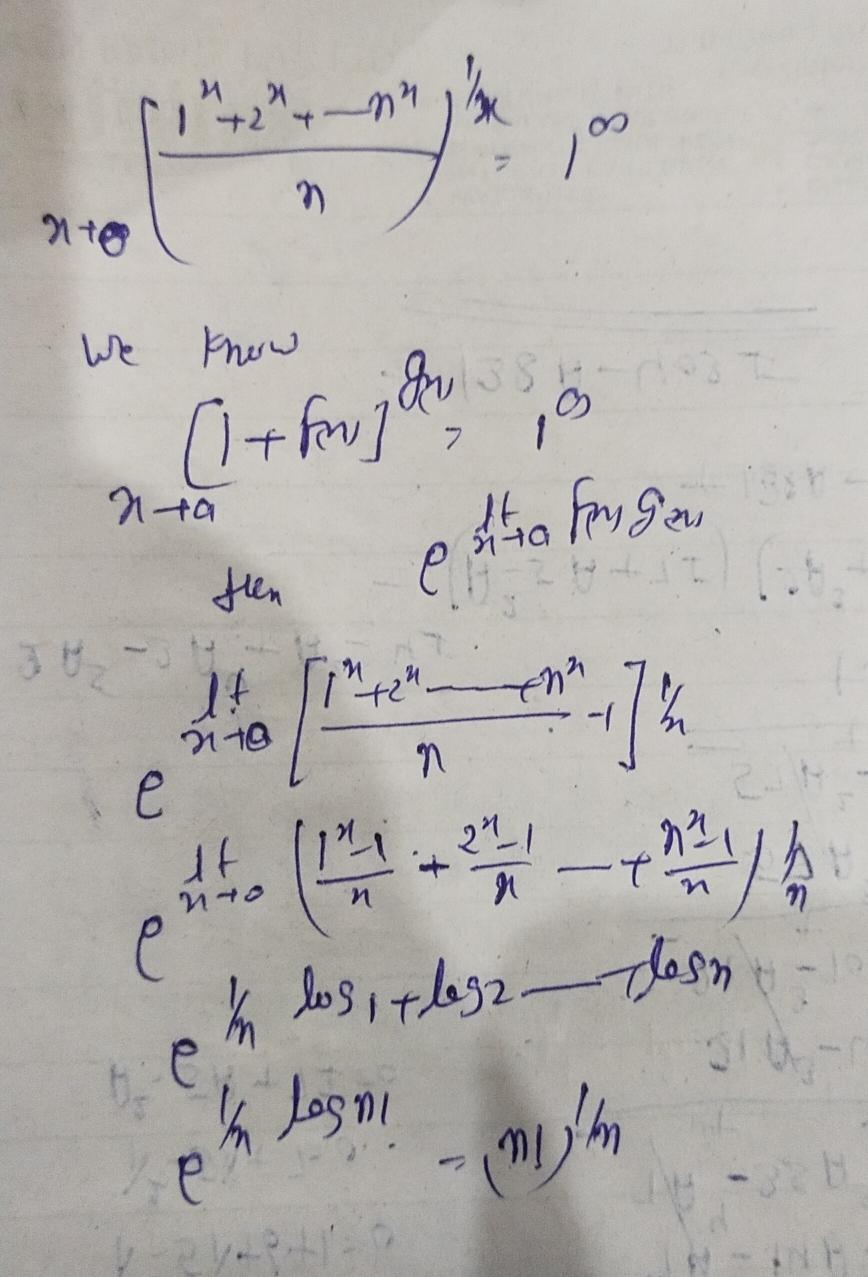 x→0 [(1^x+2^x+—n^x)/n]^1/x = 1^∞
We know
x→a [1+f(x)]^g(x) = 1^∞
then e^lt x→a f(x) g(x)
e^lt x→0 [(1^x+2^x——+n^x)/n -1] 1/x
e^lt x→0 ((1^x-1)/x + (2^x-1)/x —+ (n^x-1)/x) 1/n
e^1/n log1+log2——+logn
e^1/n logn! = (n!)^1/n